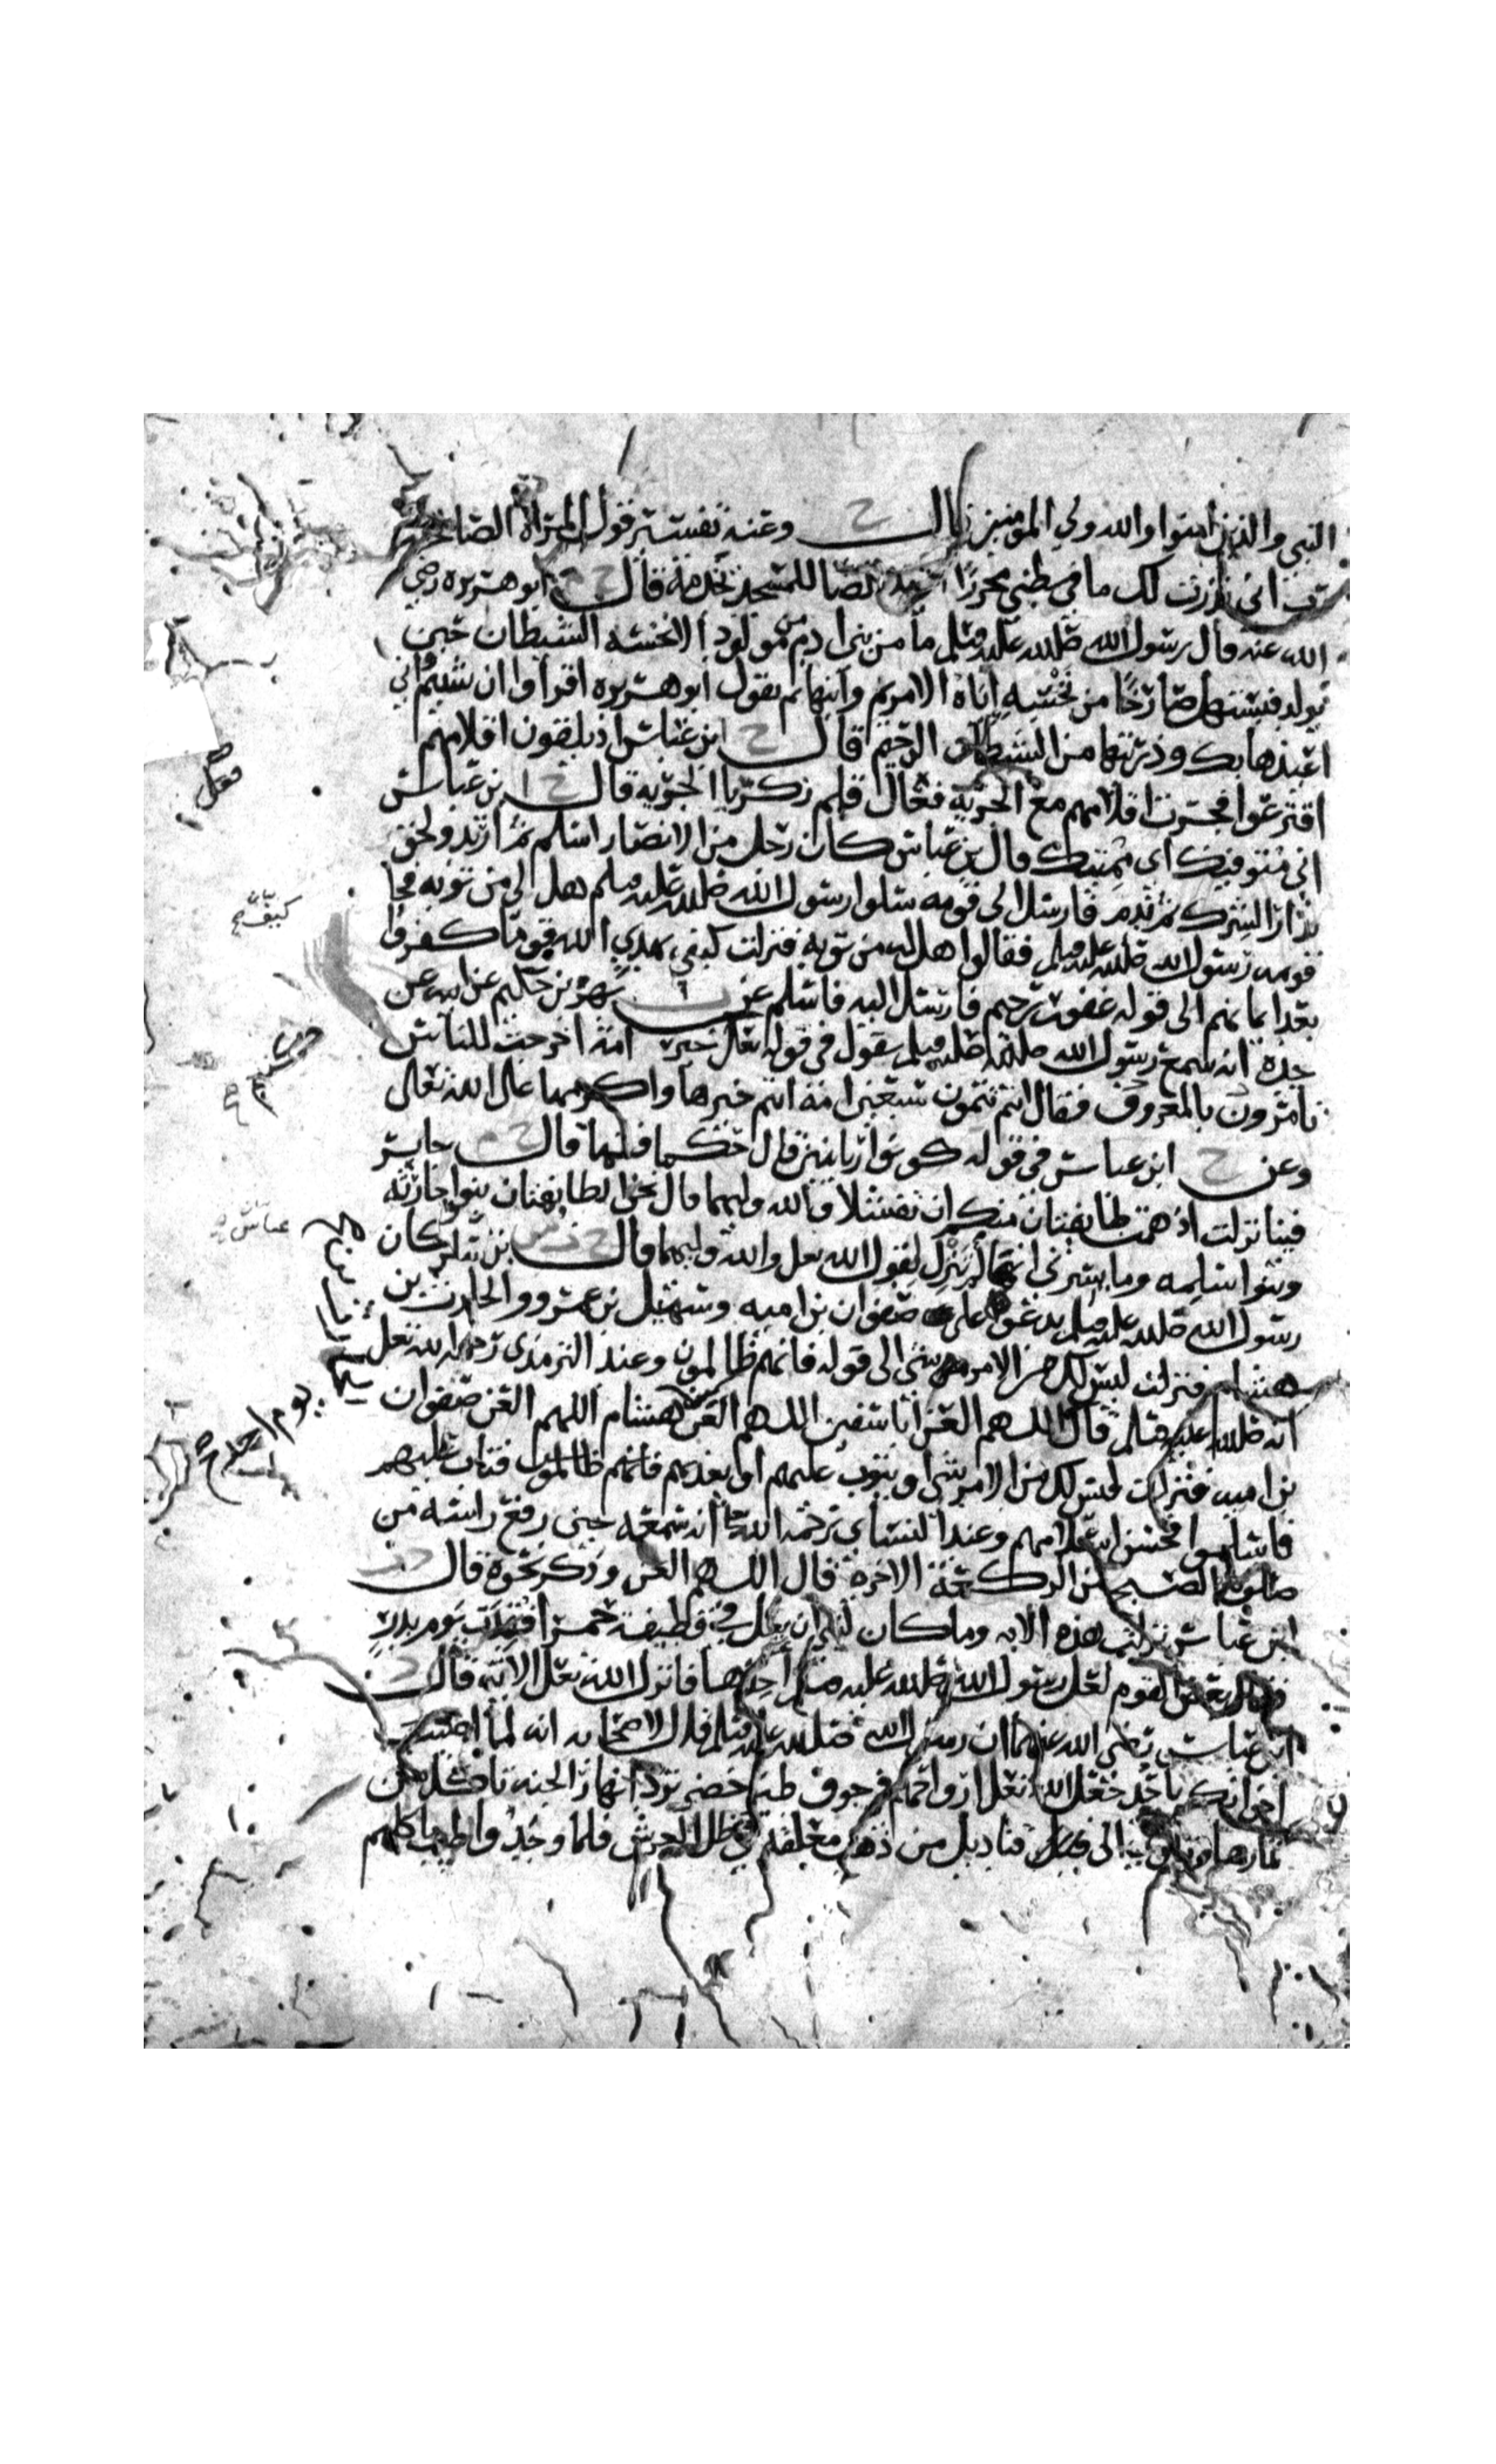 النبي والذين امنوا والله ولي المومنين قال ح وعنه تفسير قول المرأة الصالحة
رب اني نذرت لك ما في بطني محررا خالصا للمسجد تخدمه قال خ م ابو هريرة رضي
الله عنه قال رسول الله صلى الله عليه وسلم ما من بني ادم من مولود الا نخسه الشيطان حين
يولد فيستهل صارخا من نخسه اياه الا مريم وابنها ثم يقول ابو هريرة اقرأوا ان شيتم واني
اعيذها بك وذريتها من الشيطان الرجيم قال خ ابن عباس اذ يلقون اقلامهم
اقترعوا فجرت اقلامهم مع الجرية فعال قلم زكريا الجرية قال خ ابن عباس
اني متوفيك اي مميتك قال بن عباس كان رجل من الانصار اسلم ثم ارتد ولحق
بدار الشرك ثم ندم فارسل الى قومه سلوا رسول الله صلى الله عليه وسلم هل لي من توبه فجا
قومه رسول الله صلى الله عليه وسلم فقالوا هل له من توبة فنزلت كيف يهدي الله قوما كفروا
بعد ايمانهم الى قوله غفور رحيم فارسل اليه فاسلم عن ت بهز بن حكيم عن ابيه عن
جده انه سمع رسول الله صلى الله عليه وسلم يقول في قوله تعالى خير امة اخرجت للناس
تامرون بالمعروف فقال انتم تتمون سبعين امة انتم خيرها واكرمها على الله تعالى
وعن خ ابن عباس في قوله كونوا ربانيين قال حكما فقها قال خ م جابر
فينا نزلت اذ همت طايفتان منكم ان تفشلا والله وليهما قال نحن الطايفتان بنوا حارثه
وبنوا سلمه وما يسرني انها لم تنزل لقول الله تعلى والله وليهما قال خ ت س بن عمر كان
رسول الله صلى الله عليه وسلم يدعوا على صفوان بن اميه وسهيل بن عمرو والحارث بن
هشام فنزلت ليس لك من الامر شي الى قوله فانهم ظالمون وعند الترمذي رحمه الله تعلى
انه صلى الله عليه وسلم قال اللهم العن ابا سفين اللهم العن الحرث بن هشام اللهم العن صفوان
بن اميه فنزلت ليس لك من الامر شي او يتوب عليهم او يعذبهم فانهم ظالمون فتاب عليهم
فاسلموا فحسن اسلامهم وعند النسائي رحمه الله انه سمعه حين رفع راسه من
صلوة الصبح من الركعة الاخرة قال اللهم العن وذكر نحوه قال د ت
ابن عباس نزلت هذه الايه وما كان لنبي ان يغل في قطيفة حمرا افتقدت يوم بدر
فقال بعض القوم لعل رسول الله صلى الله عليه وسلم اخذها فانزل الله تعلى الاية قال د
ابن عباس رضي الله عنهما ان رسول الله صلى الله عليه وسلم قال لاصحابه انه لما اصيب
اخوانكم باحد جعل الله تعلى ارواحهم في جوف طير خضر ترد انهار الجنه تاكل من
ثمارها وتاوي الى قناديل من ذهب معلقة في ظل العرش فلما وجدوا طيب ماكلهم
كيف
عباس
يوم احد